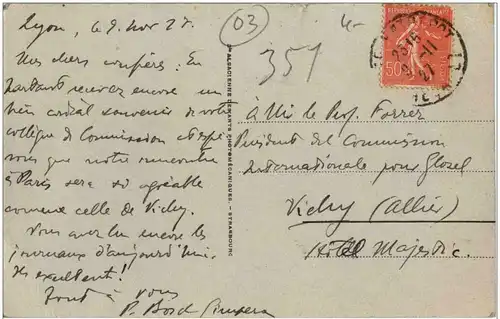 Lyon, ce 9. Nov 27.
03
4-
351
Mes chers confrères: En
partant recevez encore un
bien cordial souvenir de votre
collègue de Commission
vous que notre rencontre
à Paris sera si agréable
comme celle de Vichy.
Vous avez lu encore les
journaux d'aujourd'hui.
Ils exultent!
Tout à vous
P. Bosch Gimpera
D'ALSACIENNE D'ARTS PHOTOMÉCANIQUES. - STRASBOURG
50
À Mr le Prof. Forrer
Président del Commission
Internationale pour Glozel
Vichy (Allier)
Hôtel Majestic.